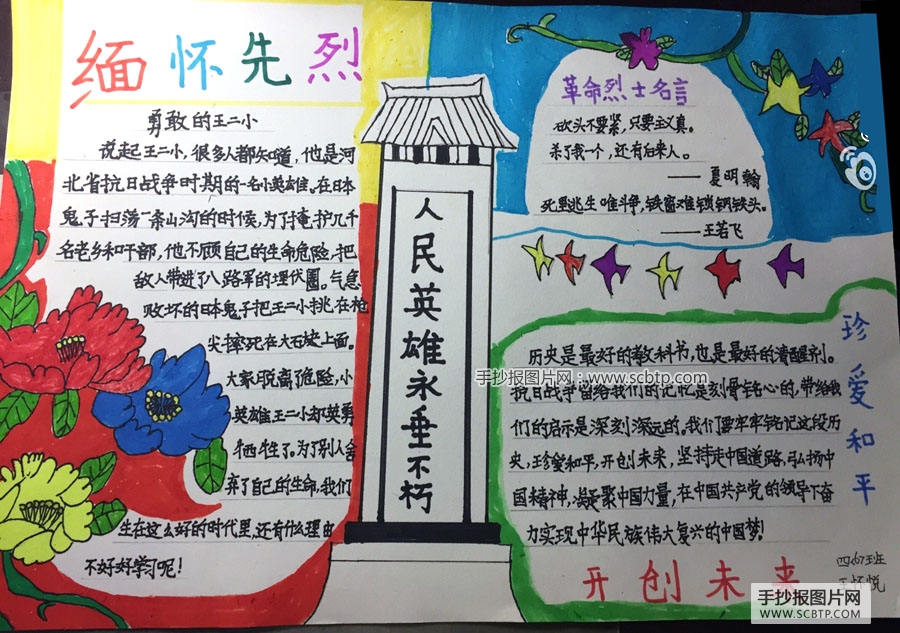 缅怀先烈
勇敢的王二小
说起王二小,很多人都知道,他是河
北省抗日战争时期的一名小英雄。在日本
鬼子扫荡一条山沟的时候,为了掩护几千
名老乡和干部,他不顾自己的生命危险,把
敌人带进了八路军的埋伏圈。气急
败坏的日本鬼子把王二小挑在枪
尖摔死在大石块上面。
大家脱离了危险,小
英雄王二小却英勇
牺牲了。为了别人舍
弃了自己的生命,我们
生在这么好的时代里,还有什么理由
不好好学习呢!
人民英雄永垂不朽
革命烈士名言
砍头不要紧,只要主义真。
杀了我一个,还有后来人。
——夏明翰
死里逃生唯斗争,铁窗难锁钢铁头。
——王若飞
历史是最好的教科书,也是最好的清醒剂。
手抄报图片网:www.scbtp.com
抗日战争留给我们的记忆是刻骨铭心的,带给我
们的启示是深刻深远的。我们要牢牢铭记这段历
史,珍爱和平,开创未来,坚持走中国道路,弘扬中
国精神,凝聚中国力量,在中国共产党的领导下奋
力实现中华民族伟大复兴的中国梦!
珍爱和平
开创未来
王怀悦
手抄报图片网
WWW.SCBTP.COM